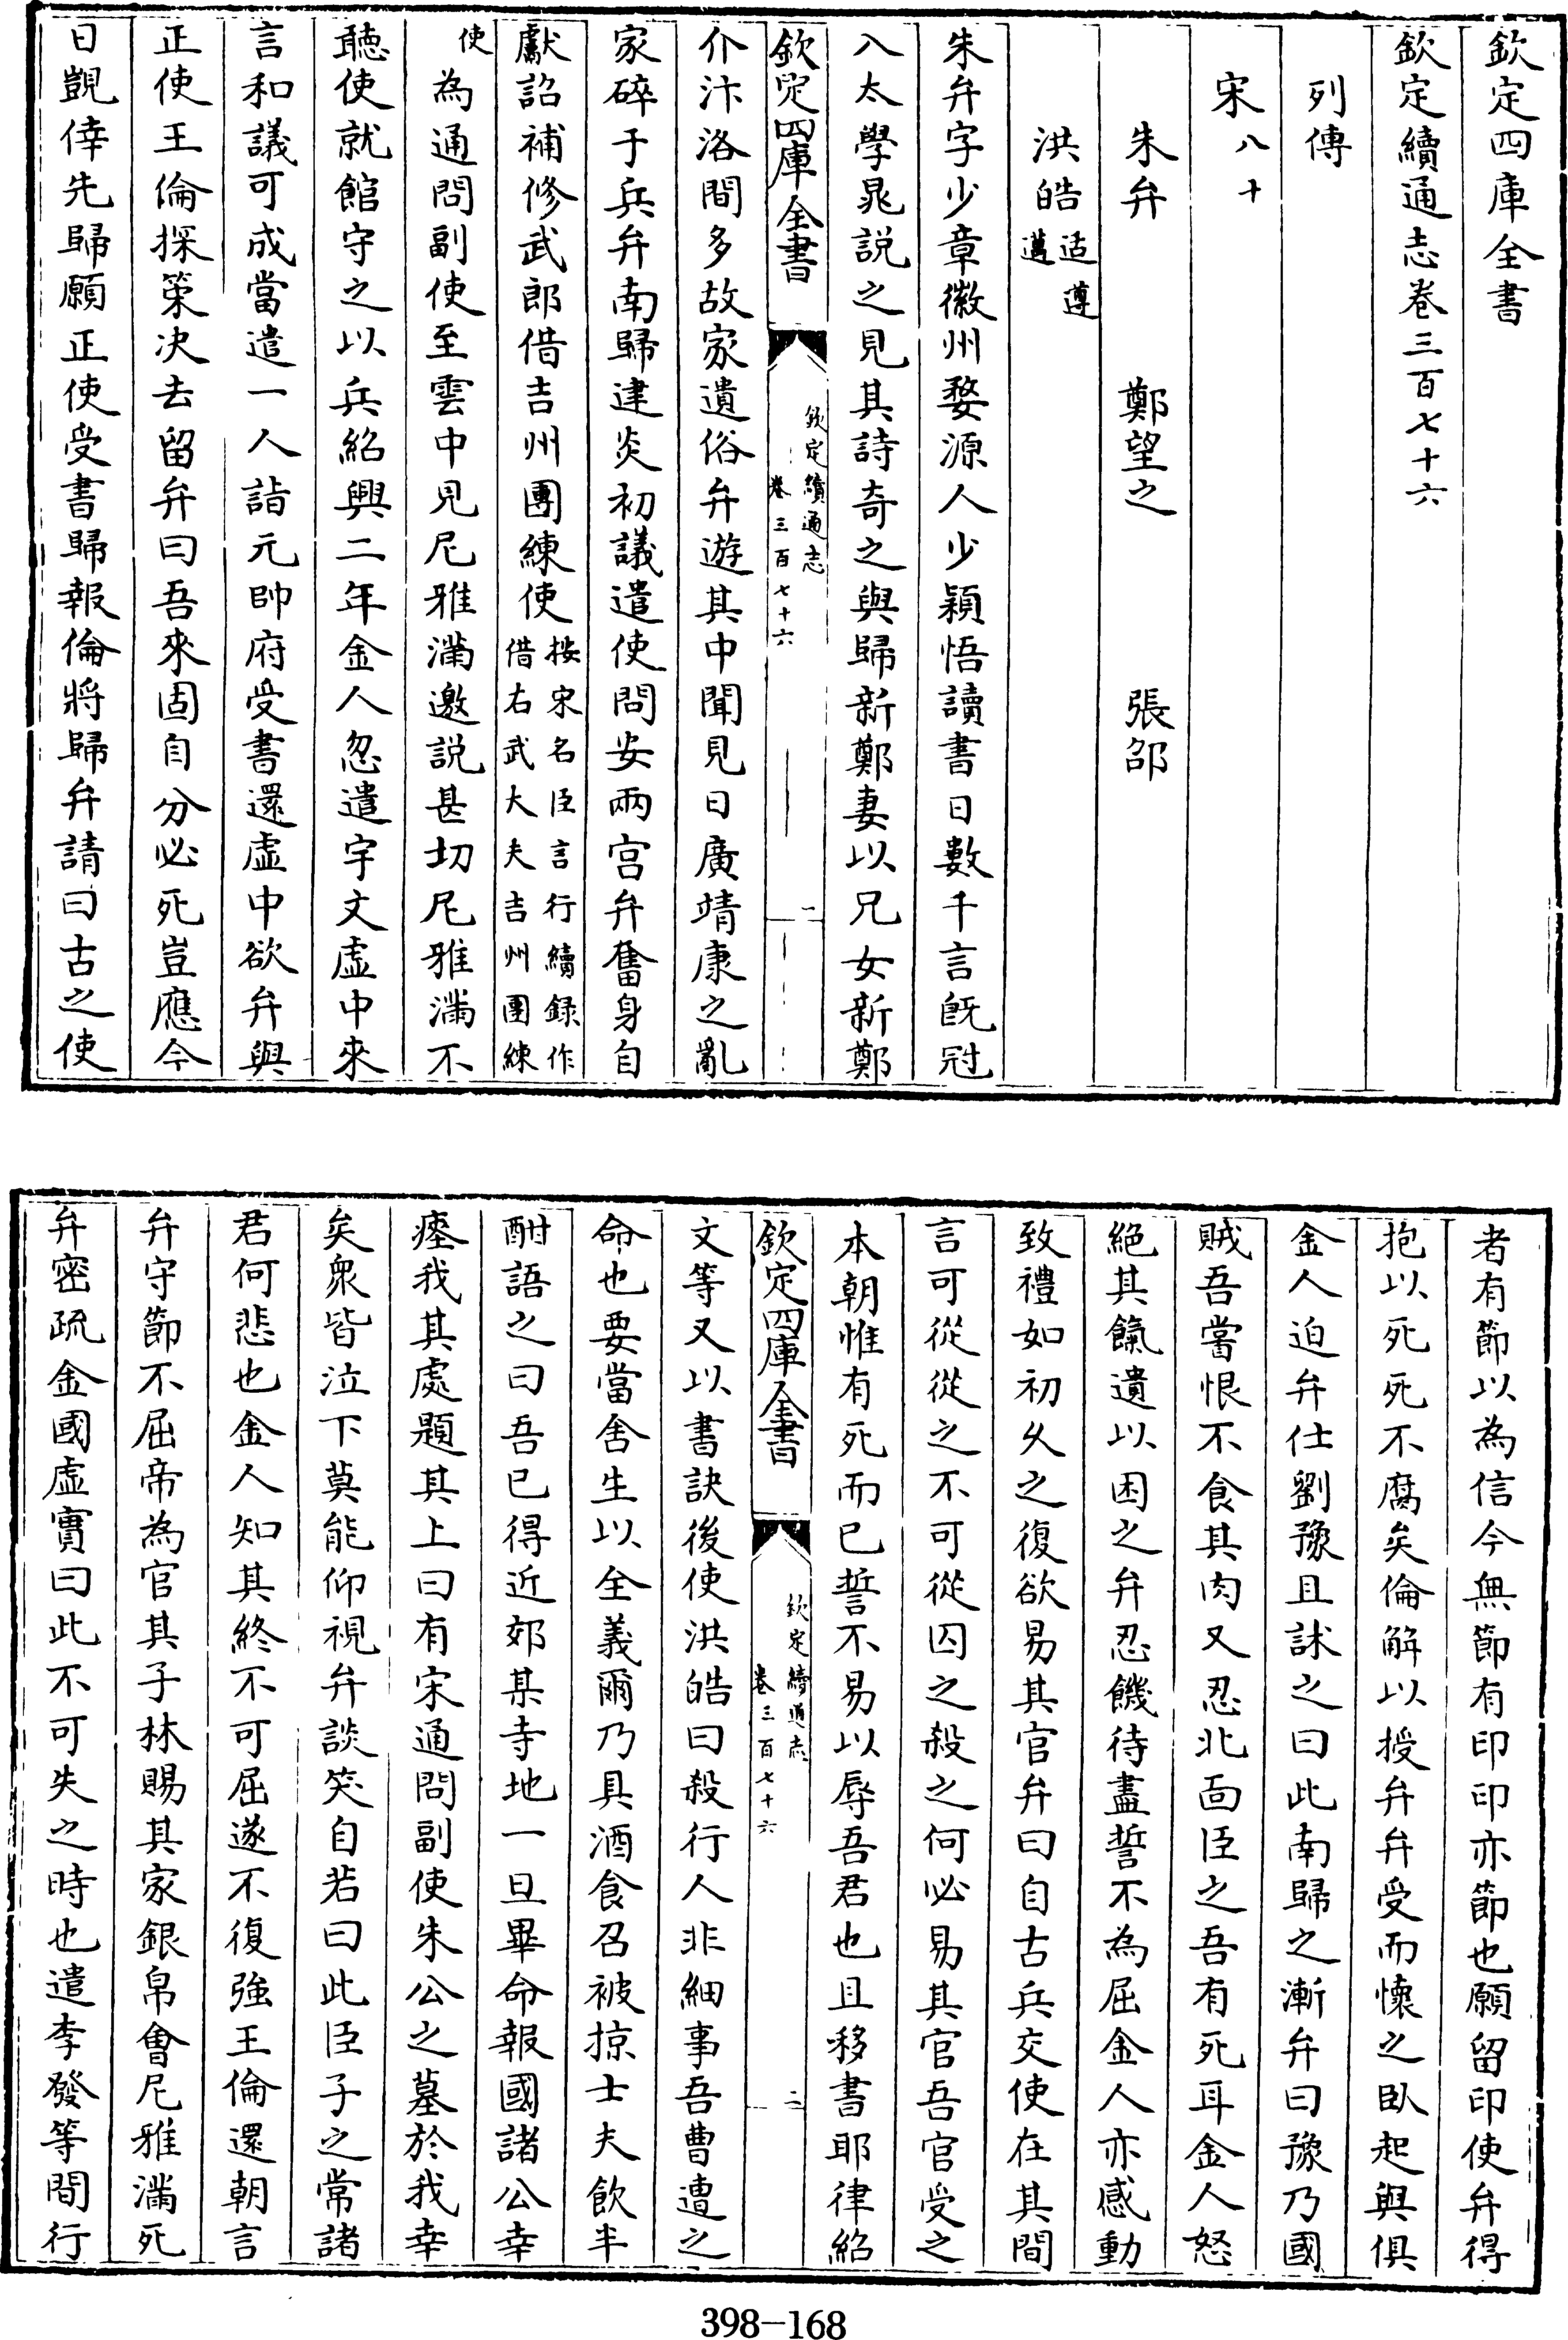 欽定四庫全書
欽定續通志卷三百七十六
列傳
宋八十
朱弁　鄭望之　張邵
洪皓适遵邁
朱弁字少章徽州婺源人少穎悟讀書日數千言既冠
入太學晁説之見其詩奇之與歸新鄭妻以兄女新鄭
欽定四庫全書
欽定續通志
卷三百七十六
一
介汴洛間多故家遺俗弁遊其中聞見日廣靖康之亂
家碎于兵弁南歸建炎初議遣使問安兩宮弁奮身自
獻詔補修武郎借吉州團練使按宋名臣言行續録作借右武大夫吉州團練
使為通問副使至雲中見尼雅滿邀説甚切尼雅滿不
聽使就館守之以兵紹興二年金人忽遣宇文虛中來
言和議可成當遣一人詣元帥府受書還虛中欲弁與
正使王倫探策决去留弁曰吾來固自分必死豈應今
日覬倖先歸願正使受書歸報倫將歸弁請曰古之使
者有節以為信今無節有印印亦節也願留印使弁得
抱以死死不腐矣倫解以授弁弁受而懷之臥起與俱
金人迫弁仕劉豫且訹之曰此南歸之漸弁曰豫乃國
賊吾嘗恨不食其肉又忍北面臣之吾有死耳金人怒
絕其餼遺以困之弁忍饑待盡誓不為屈金人亦感動
致禮如初久之復欲易其官弁曰自古兵交使在其間
言可從從之不可從囚之殺之何必易其官吾官受之
本朝惟有死而已誓不易以辱吾君也且移書耶律紹
欽定四庫全書
欽定續通志
卷三百七十六
二
文等又以書訣後使洪皓曰殺行人非細事吾曹遭之
命也要當舍生以全義爾乃具酒食召被掠士夫飲半
酣語之曰吾已得近郊某寺地一旦畢命報國諸公幸
瘞我其處題其上曰有宋通問副使朱公之墓於我幸
矣衆皆泣下莫能仰視弁談笑自若曰此臣子之常諸
君何悲也金人知其終不可屈遂不復強王倫還朝言
弁守節不屈帝為官其子林賜其家銀帛會尼雅滿死
弁密疏金國虛實曰此不可失之時也遣李發等間行
398-168